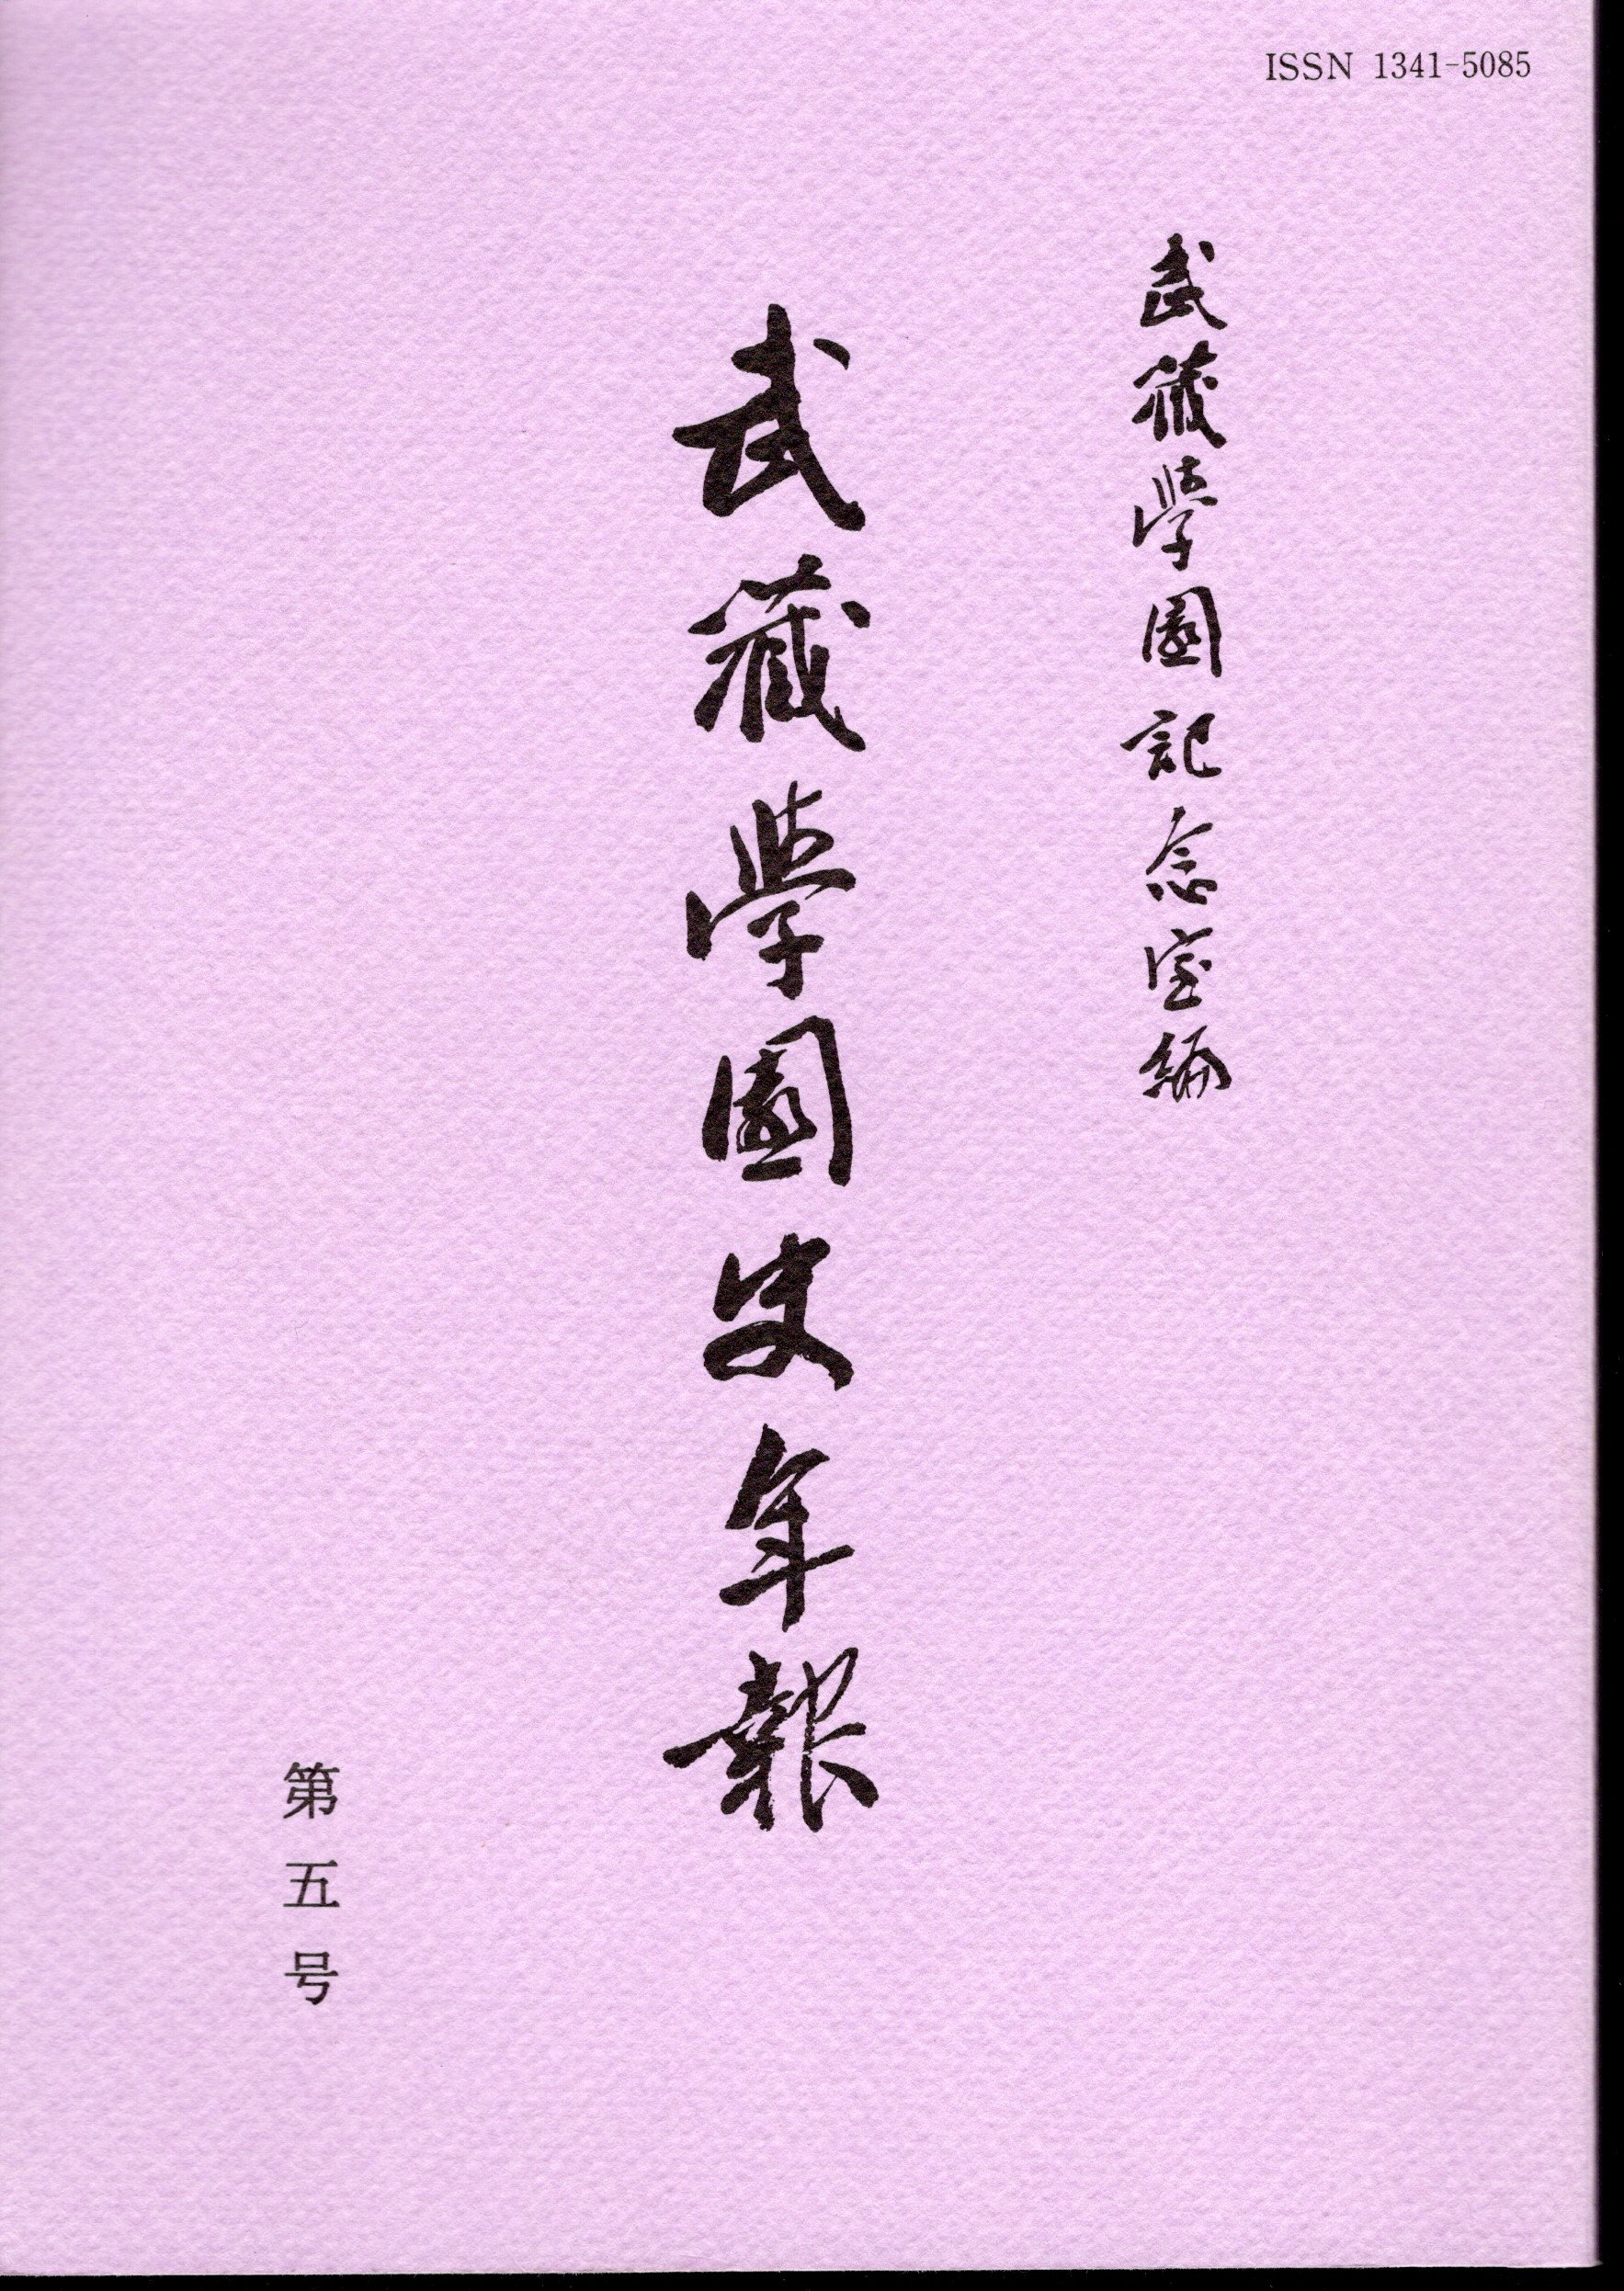 ISSN 1341-5085
武蔵學園記念室編
武蔵學園史年報
第五号